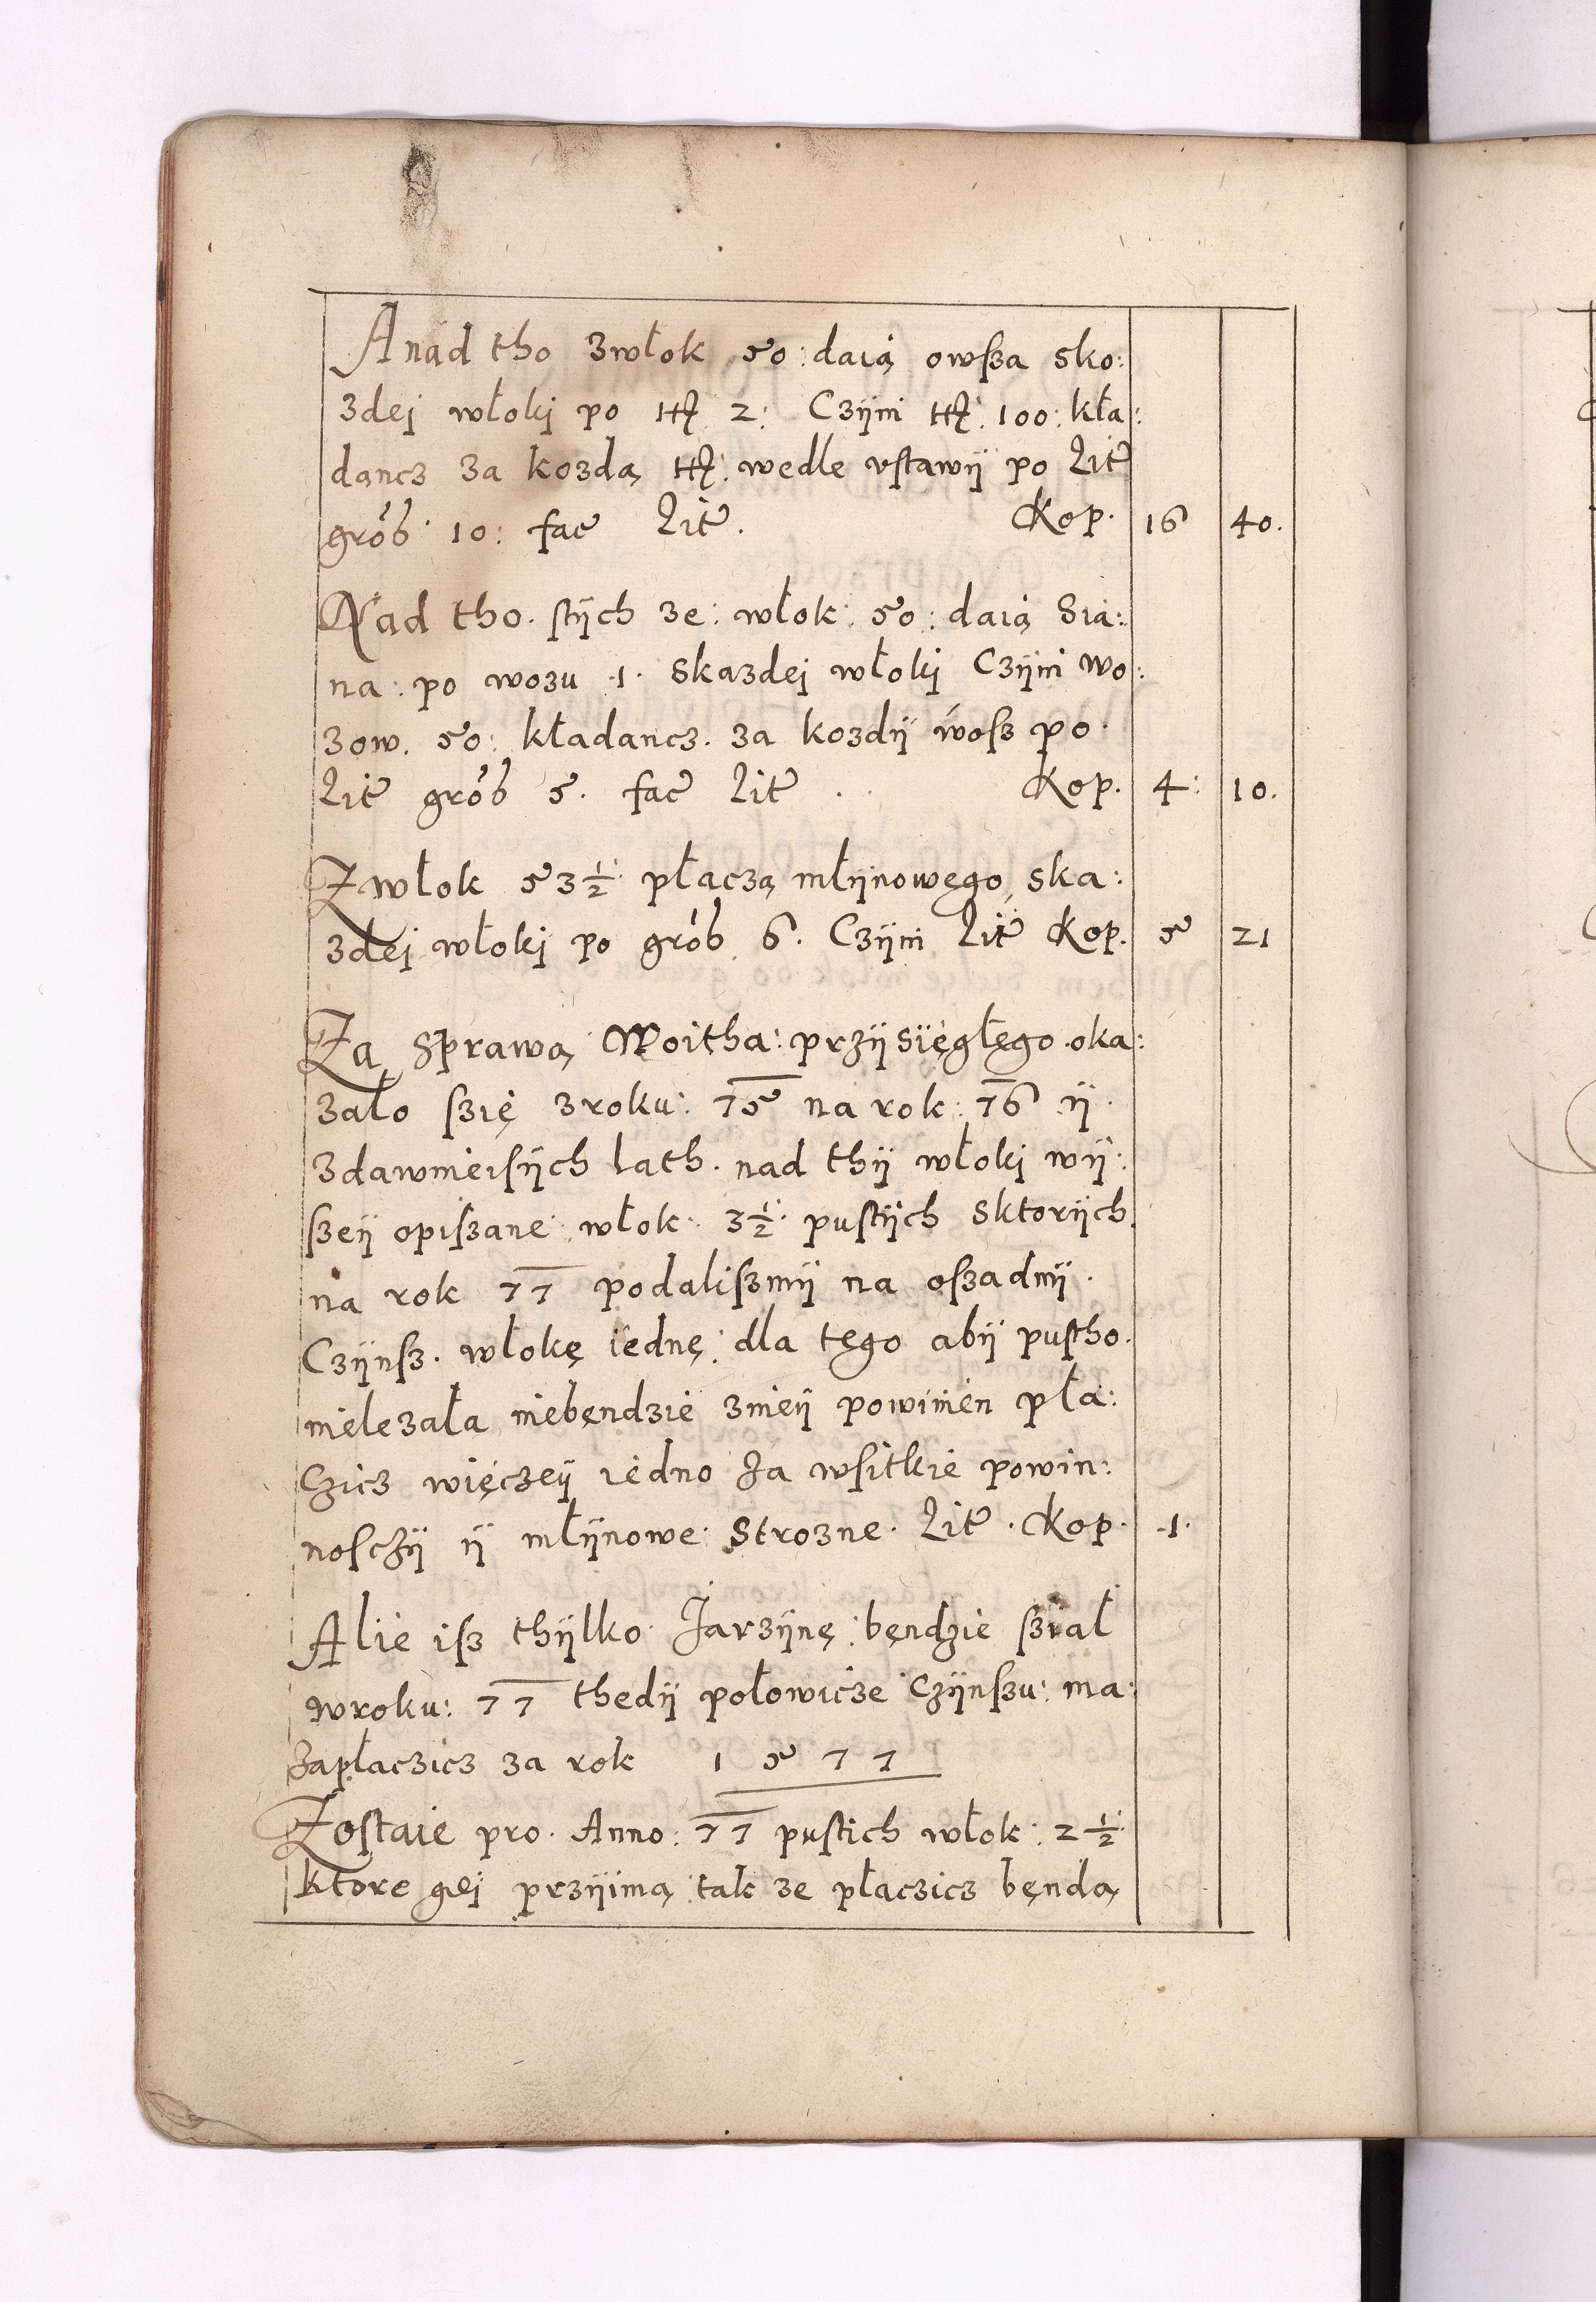 A nad tho zwłok 50: daią owsza sko:
zdej włokj po tt. 2: Czÿni tt. 100: kła:
dancz za kozdą tt. wedle vstawÿ po Lit
grob 10: fac Lit. Kop. 16 40.
Nad tho. stÿch ze: włok: 50: daią Sia:
na: po wozu .1. skazdej włokj Czÿni wo:
zow. 50: kładancz. za kozdÿ wosz po.
Lit grob 5. fac Lit . . Kop. 4: 10.
Z włok 53 1/2 płaczą młÿnowęgo ska:
zdej włokj po grob 6. Czÿni Lit Kop. 5 21
Za Sprawą Woitha: przÿsięgłęgo. oka:
zało szię zroku: 75 na rok: 76 ÿ.
zdawnieisÿch lath. nad thÿ włokj wÿ:
szeÿ opiszane: włok: 3 1/2 pustÿch sktorÿch
na rok 77 podaliszmÿ na oszadnÿ.
Czÿnsz. włokę iednę: dla tęgo abÿ pustho.
nielezała niebęndzie znieÿ powinien pła:
czicz więczeÿ iedno za wsitkie powin:
nosczÿ ÿ młÿnowe: Strozne. Lit. Kop. .1.
Alie isz thÿlko Jarzÿnę: bęndzie sział
wroku: 77 thedÿ połowicze Czÿnszu: ma:
zapłaczicz za rok 1 5 7 7
Zostaie pro. Anno: 77 pustich włok: 2 1/2
ktore gdj przÿimą tak ze płaczicz bęndą